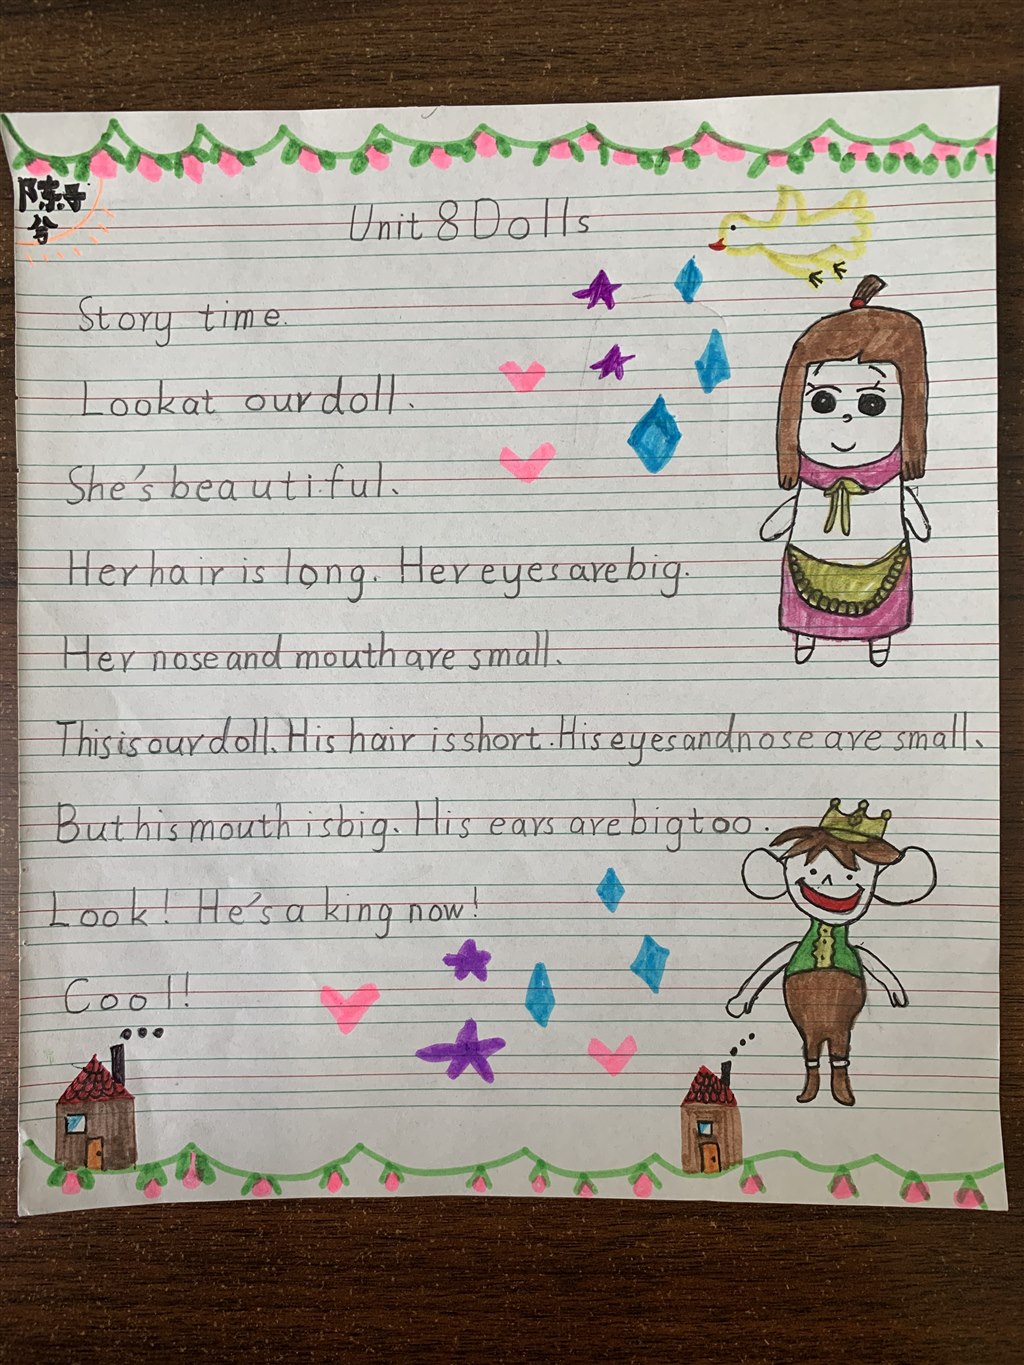 陈子
兮
Unit 8 Dolls
Story time.
Look at our doll.
She's beautiful.
Her hair is long. Her eyes are big.
Her nose and mouth are small.
This is our doll. His hair is short. His eyes and nose are small.
But his mouth is big. His ears are big too.
Look! He's a king now!
Cool!